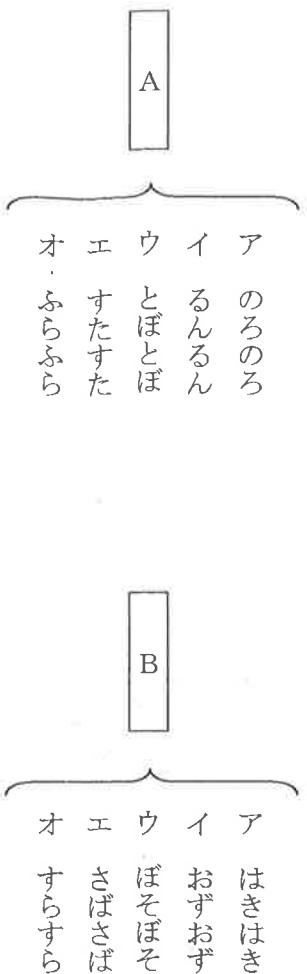 A
ア のろのろ
イ るんるん
ウ とぼとぼ
エ すたすた
オ ふらふら
B
ア はきはき
イ おずおず
ウ ぼそぼそ
エ さばさば
オ すらすら